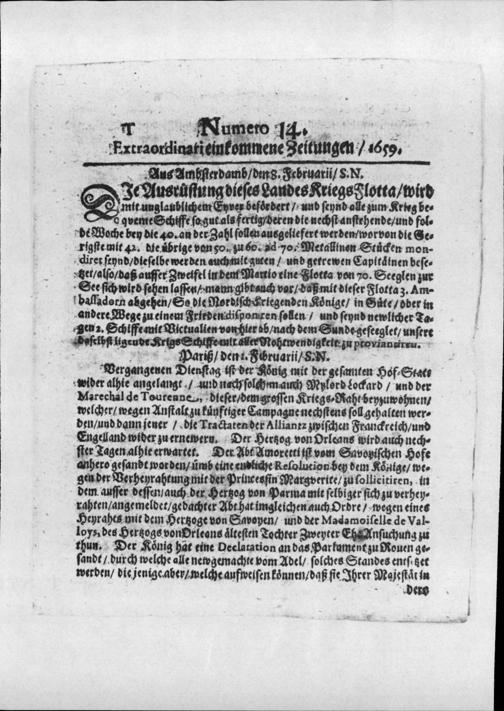 T Numero 14.
Extraordinari einkommene Zeitungen / 1659.
Aus Ambsterdamb / den 8. Februarii / S.N.
DJe Ausrüstung dieses Landes KriegsFlotta / wird
mit unglaublichem Eyver befördert / und seynd alle zum Krieg be-
queme Schiffe so gut als fertig / deren die nechst anstehende / und fol-
de Woche bey die 40. an der Zahl sollen ausgeliefert werden / worvon die Ge-
rigste mit 42. die übrige von 50. zu 60. ad 70. Metallinen Stücken mon-
diret seynd / dieselbe werden auch mit guten / und getrewen Capitäinen bese-
tzet / also / daß ausser Zweifel in dem Martio eine Flotta von 70. Seeglen zur
See sich wird sehen lassen / mann gibt auch vor / daß mit dieser Flotta 3. Am-
bassadorn abgehen / So die Nordisch-Kriegenden Könige / in Güte / oder in
andere Wege zu einem Frieden disponiren sollen / und seynd newlicher Ta-
gen 2. Schiffe mit Victualien von hier ab / nach dem Sunde geseeglet / unsere
daselbst ligende Kriegs Schiffe mit aller Nohtwendigkeit zu proviantiren.
Pariß / den 1. Februarii / S.N.
Vergangenen Dienstag ist der König mit der gesamten Hof-Stats
wider alhie angelangt / und nach solchem auch Mylord Lockard / und der
Marechal de Tourenne, dieser / dem grossen Kriegs-Raht beyzuwohnen /
welcher / wegen Anstalt zu künftiger Campagne nechstens soll gehalten wer-
den / und dann jener / die Tractaten der Alliantz zwischen Franckreich / und
Engelland wider zu ernewern. Der Hertzog von Orleans wird auch nech-
ster Tagen alhie erwartet. Der Abt Amoretti ist vom Savoyischen Hofe
anhero gesandt worden / ümb eine endliche Resolution bey dem Könige / we-
gen der Verheyrahtung mit der Princessin Margverite / zu sollicitiren, in
dem ausser dessen / auch der Hertzog von Parma mit selbiger sich zu verhey-
rahten / angemeldet / gedachter Abt hat imgleichen auch Ordre / wegen eines
Heyrahts mit dem Hertzoge von Savoyen / und der Madamoiselle de Val-
loys, des Hertzogs von Orleans ältesten Tochter Zweyter Ehe Ansuchung zu
thun. Der König hat eine Declaration an das Parlament zu Rouen ge-
sandt / durch welche alle newgemachte vom Adel / solches Standes entsetzet
werden / die jenige aber / welche aufweisen können / daß sie Ihrer Majestät in
dero